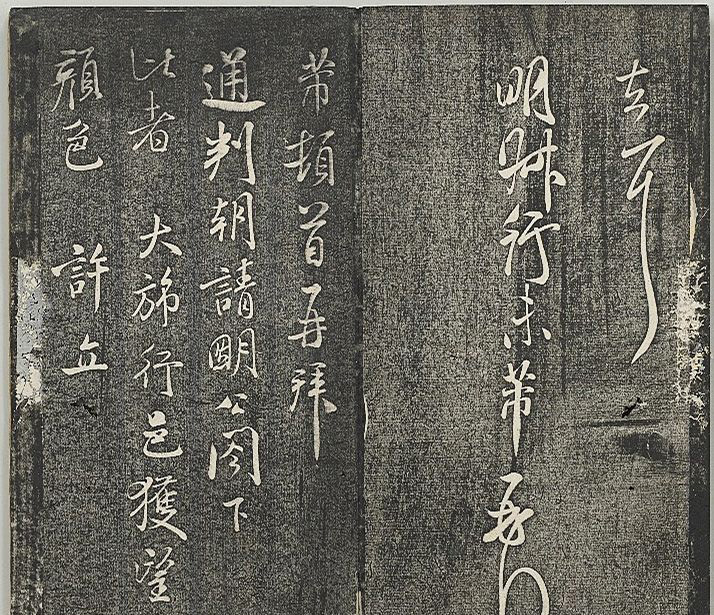 去耳
明時行未芾再
芾頓首再拜
通判朝請明公閤下
比者 大旆行邑獲望
顏色 許立